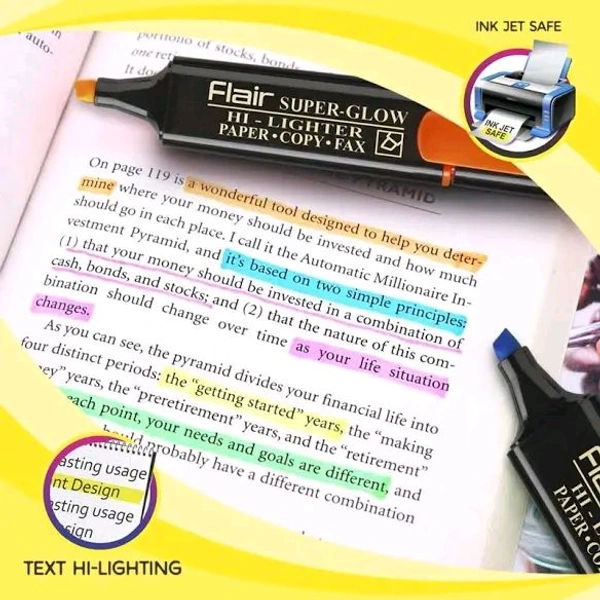 INK JET SAFE
portfolio of stocks, bonds
auto-
one
It
Flair SUPER-GLOW
HI-LIGHTER
PAPER•COPY•FAX
INK JET
SAFE
PYRAMID
On page 119 is a wonderful tool designed to help you deter-
mine where your money should be invested and how much
should go in each place. I call it the Automatic Millionaire In-
vestment Pyramid, and it's based on two simple principles:
(1) that your money should be invested in a combination of
cash, bonds, and stocks; and (2) that the nature of this com-
bination should change over time as your life situation
changes.
As you can see, the pyramid divides your financial life into
four distinct periods: the "getting started" years, the "making
years, the "preretirement" years, and the "retirement"
each point, your needs and goals are different, and
probably have a different combination
Flair
HI-
PAPER•CO
asting usage
nt Design
esting usage
sign
TEXT HI-LIGHTING